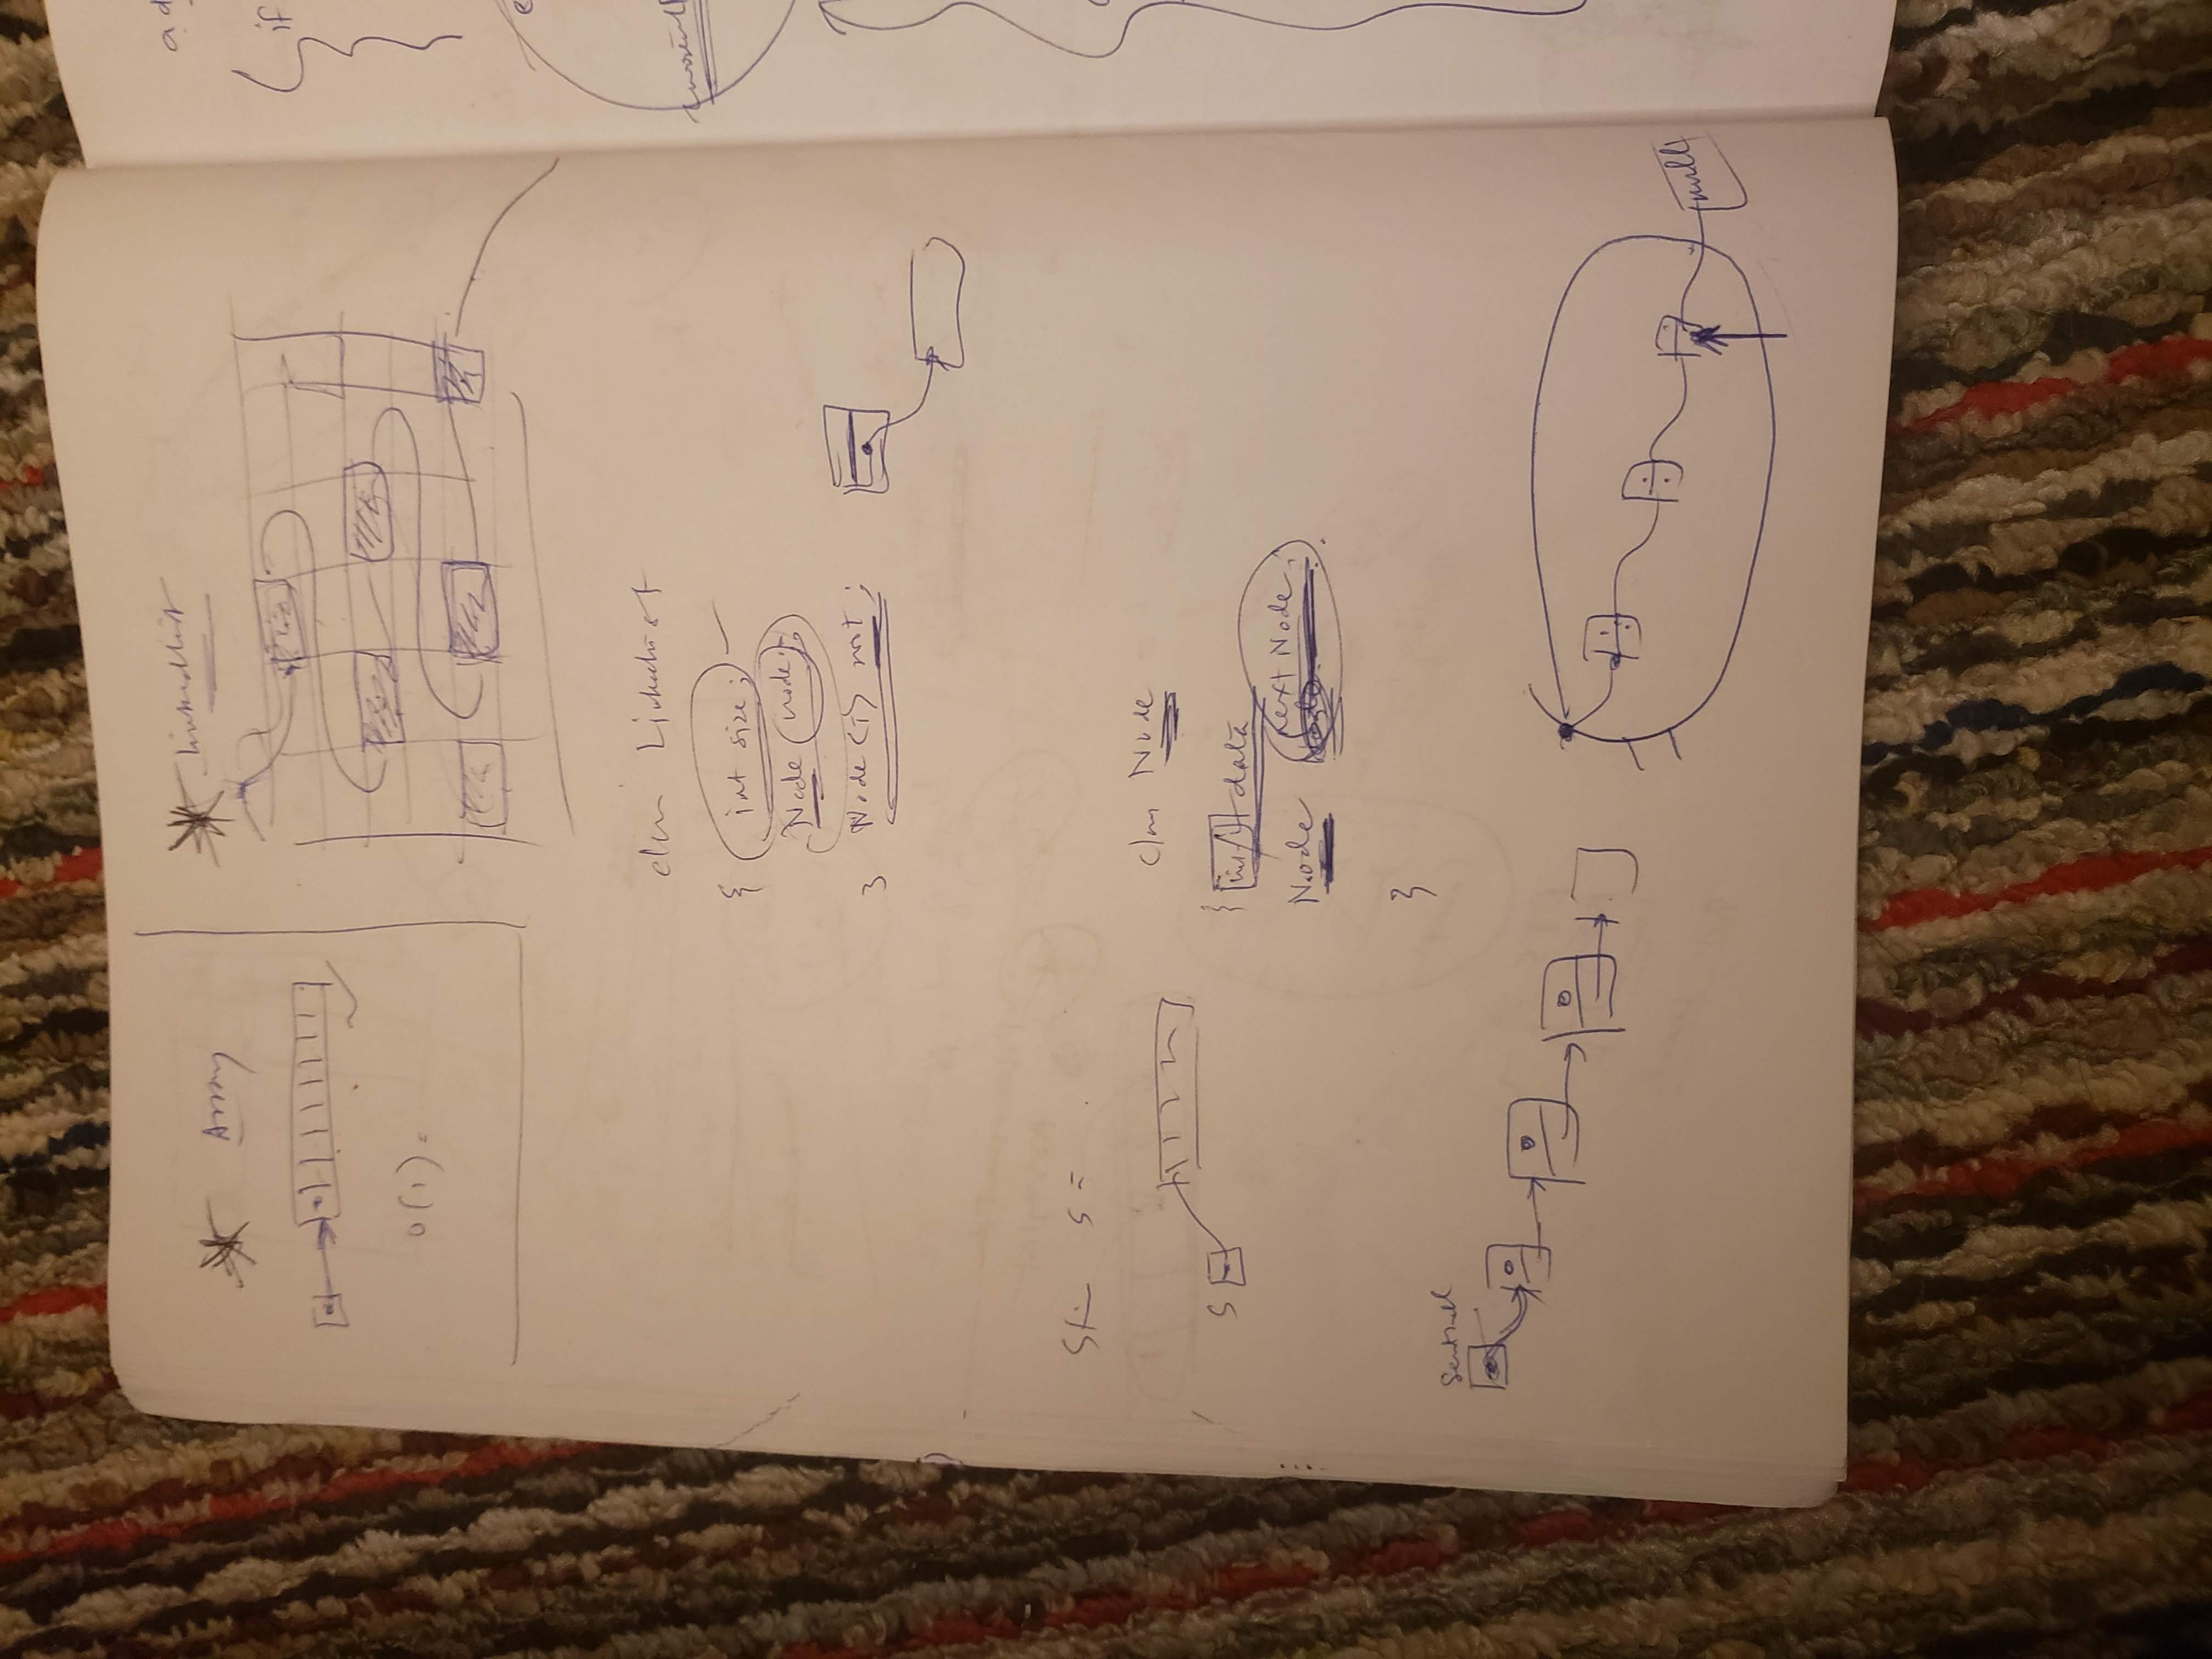 Array
LinkedList
O(1)
class LinkedList
{ int size;
Node node;
} Node<T> root;
s =
class Node
S
{ int/T data
Node next Node;
}
Sentinel
null
ad
if